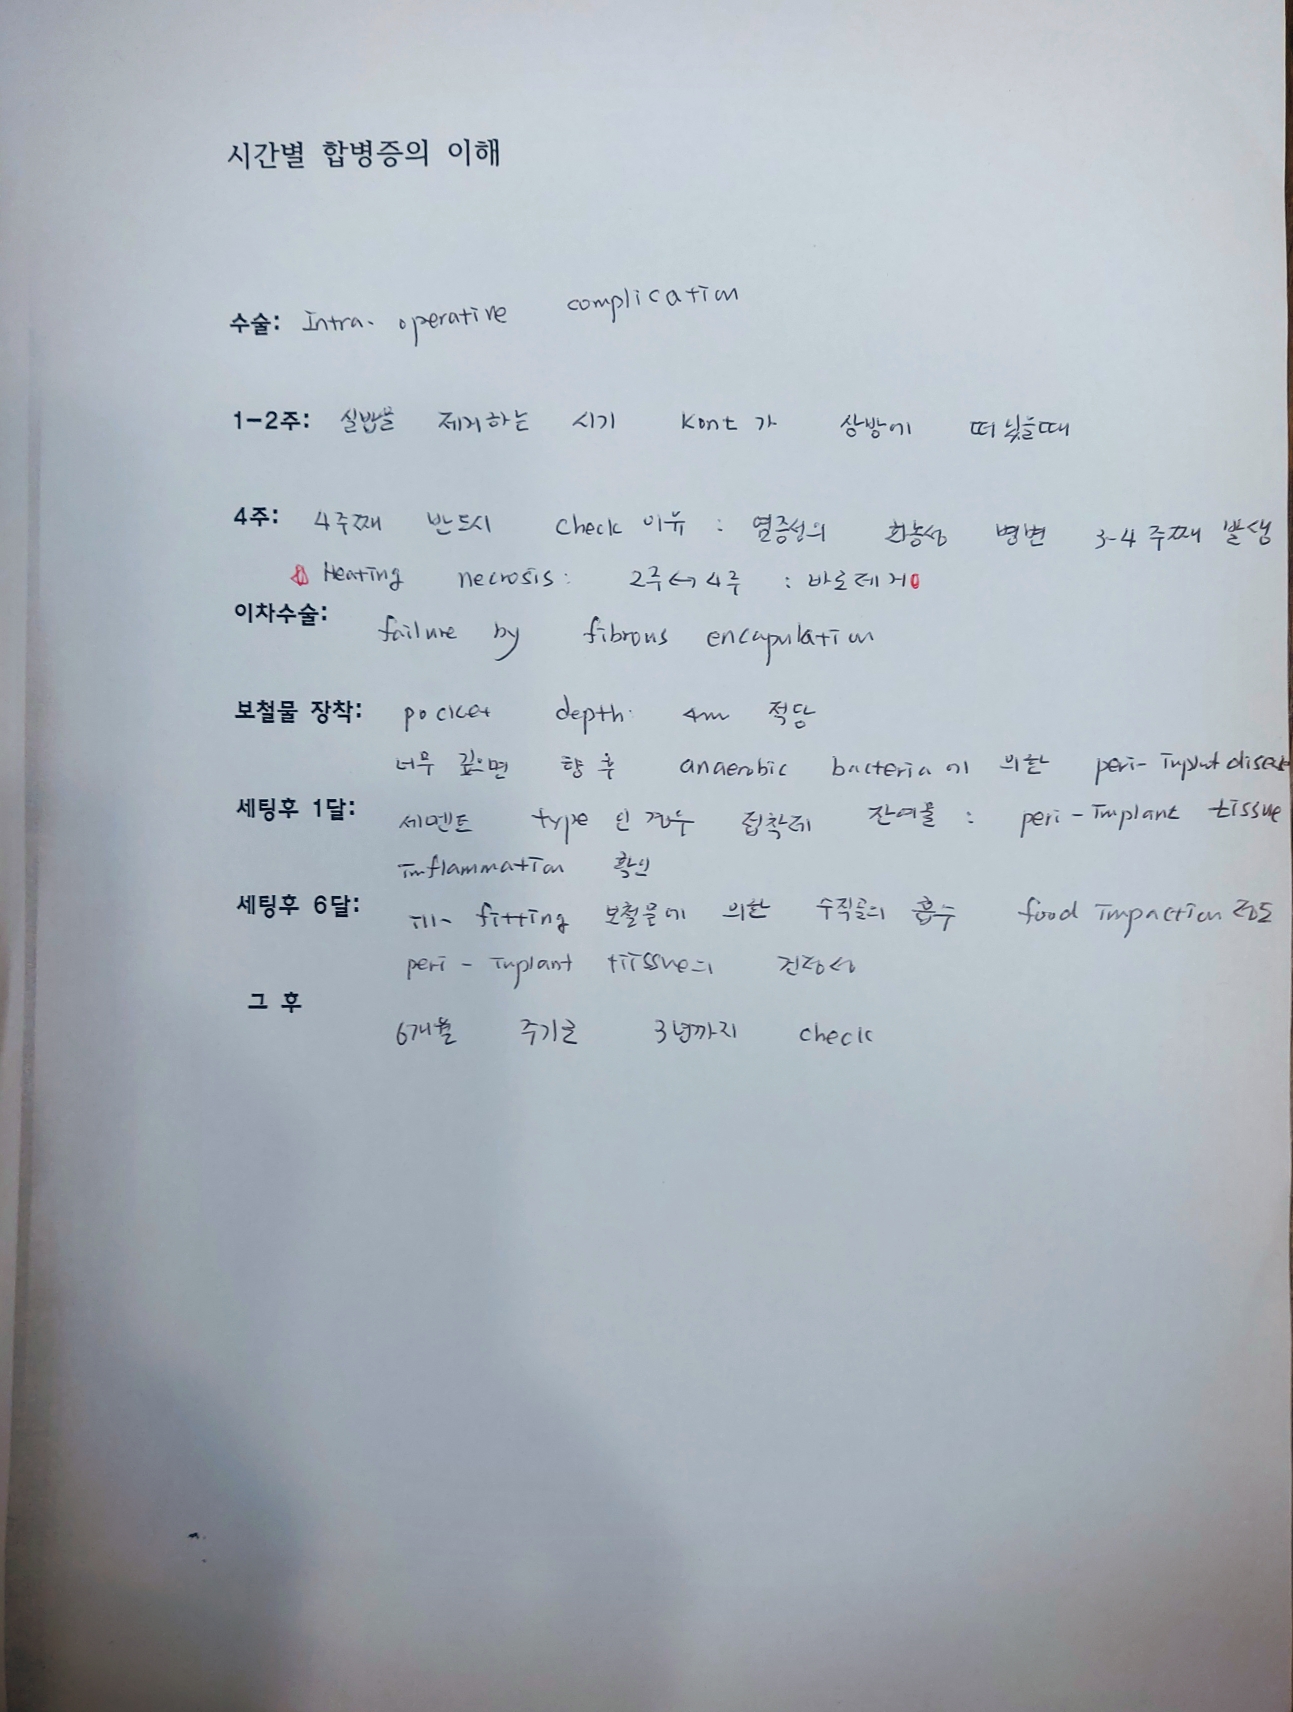 시간별 합병증의 이해
수술: Intra-operative complication
1-2주: 실밥을 제거하는 시기 Kont가 상방에 떠 있을때
4주: 4주째 반드시 check 이유 : 열증성의 화농성 병변 3-4주째 발생
Heating necrosis: 2주↔4주 : 바로제거
이차수술: failure by fibrous encapulation
보철물 장착: pocket depth 4m 적당
너무 깊으면 향후 anaerobic bacteria에 의한 peri-Implant disease
세팅후 1달: 세멘트 type 인 경우 접착제 잔여물 : peri-Implant tissue
inflammation 확인
세팅후 6달: ill-fitting 보철물에 의한 수직골의 흡수 food impaction 정도
peri-inplant tiissue의 건강성
그 후
6개월 주기로 3년까지 check